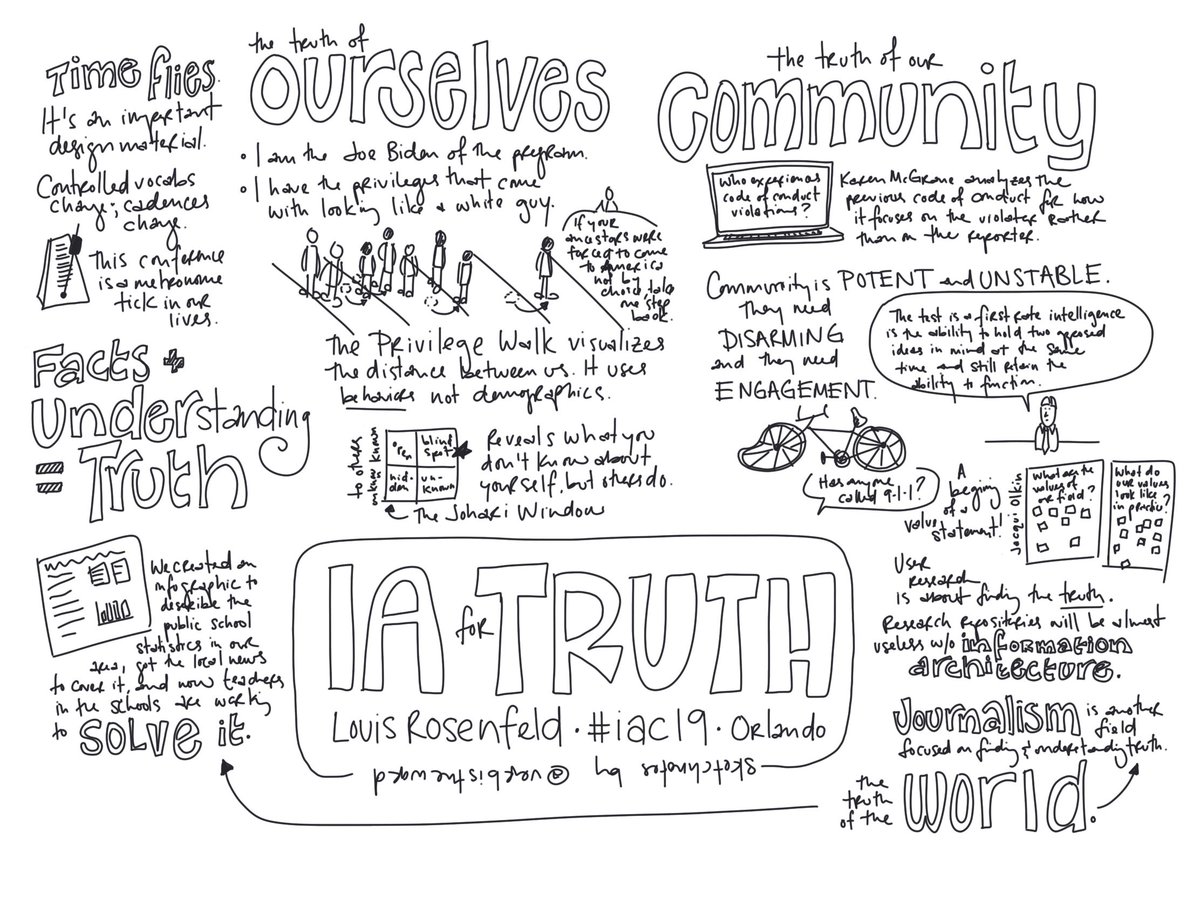 Time flies.
It's an important
design material.
Controlled vocabs
change; cadences
change.
This conference
is a metronome
tick in our
lives.
Facts +
understanding
= Truth
the truth of
OURSELVES
• I am the Joe Biden of the program.
• I have the privileges that come
with looking like a white guy.
If your
ancestors were
forced to come
to America
not by
choice, take
one step
back.
The Privilege Walk visualizes
the distance between us. It uses
behaviors not demographics.
to others
unknown known
open
blind
spot
hid-
den
un-
known
The Johari Window
Reveals what you
don't know about
yourself, but others do.
the truth of our
Community
Who experiences
code of conduct
violations?
Karen McGrane analyzes the
previous code of conduct for how
it focuses on the violater rather
than on the reporter.
Community is POTENT and UNSTABLE.
They need
DISARMING
and they need
ENGAGEMENT.
The test is a first rate intelligence
is the ability to hold two opposed
ideas in mind at the same
time and still retain the
ability to function.
Has anyone
called 9-1-1?
A
begining
of a
value
statement!
Jacqui Olkin
What are the
values of
our field?
What do
our values
look like
in practice?
User
research
is about finding the truth.
Research repositories will be almost
useless w/o information
architecture.
Journalism is another
field
focused on finding & understanding truth.
the
truth
of the
World.
We created an
infographic to
describe the
public school
statistics in our
area, got the local news
to cover it, and now teachers
in the schools are working
to solve it.
IA for TRUTH
Louis Rosenfeld · #iac19 · Orlando
Sketchnotes by @verbisthewerd